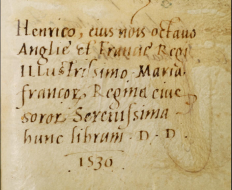 Henrico, eius nois octavo
Anglie et Francie Regi
Illustrissimo Maria
francor Regina eius
soror Serenissima
hunc librum D D
1530